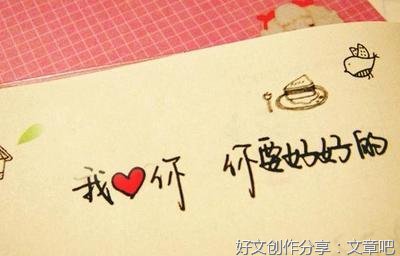 我❤你 你要好好的
好文创作分享：文章吧